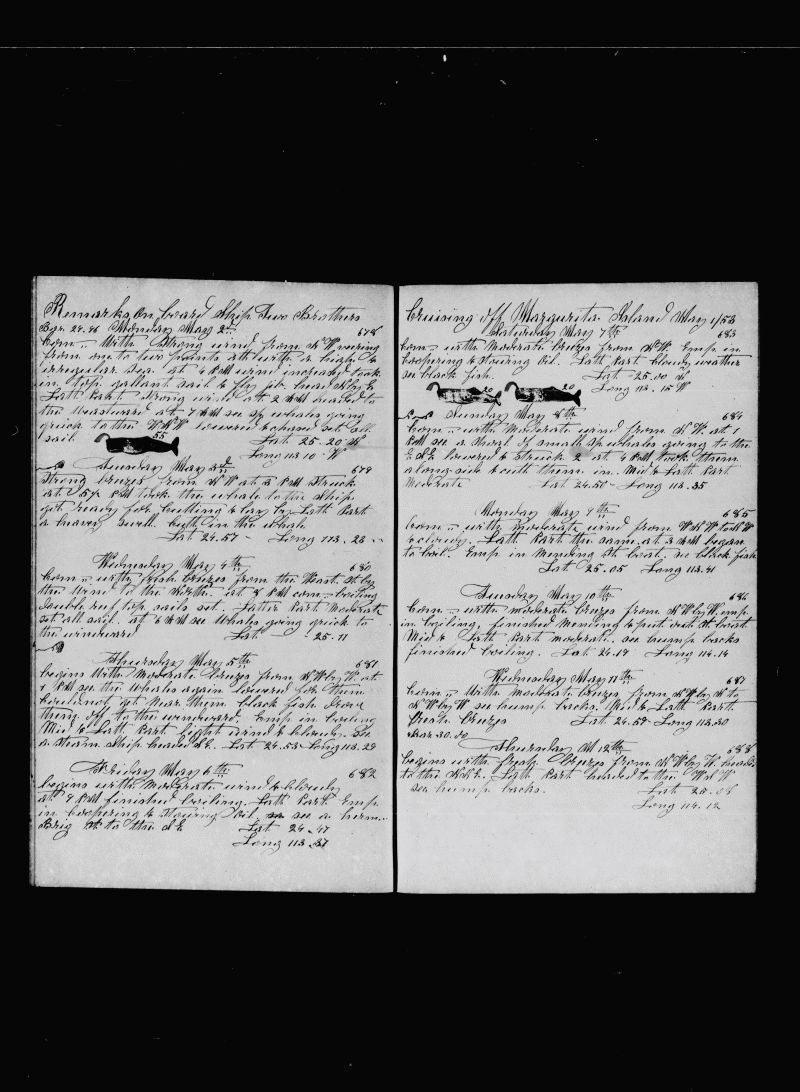 Remarks on board Ship Two Brothers
Bgr. 29.46 Monday May 2nd 678
Com - with Strong wind from NW veering
from one to two points all with a high &
irregular sea. at 4 PM wind increased took
in top gallant sail & fly jib. head N by E
Latt Part strong wind at 2 AM headed to
the Westward at 7 AM see sp whales going
quick to the WNW lowered & chased set all
sail. 55 Lat 25.20 N
Long 113 10 W
Tuesday May 3d 679
Strong breezes from NW at 3 PM Struck
at 5 PM took the whale to the ship
got ready for cutting & lay by Latt Part
a heavy swell. both in the whale
Lat 24.57 - Long 113.28
Wednesday May 4th 680
Com - with fresh breezes from the West. St by
the wind to the North. at 8 PM com - boiling
double reef top sails set. Latter Part Moderate
set all sail. at 6 AM see Whales going quick to
the windward Lat - 25.11
Thursday May 5th 681
begins With Moderate breezes from NW by W. at
1 PM see the Whales again lowered for them
Could not get Near them black fish drove
them off to the windward. Emp in boiling
Mid & Latt Part light wind & cloudy. See
a Steam Ship headed SE. Lat 24.53 Long 113.29
Friday May 6th 682
begins with Moderate wind & cloudy
at 8 PM finished boiling. Latt Part Emp
in Coopering & Stowing Oil, see a herm
Brig St to the SE Lat 24.47
Long 113.37
Cruising off Margurita Island May 1/53
Saturday May 7th 683
Com - with Moderate breezes from NW. Emp in
Coopering & Stowing Oil. Latt Part cloudy weather
see black fish. Lat - 25.00 N
Long 113.15 W
20 20
Sunday May 8th 684
Com - with Moderate wind from NW. at 1
PM see a Shoal of small sp whales going to the
ESE lowered & Struck 2 at 4 PM took them
along side & cutt them in. Mid & Latt Part
Moderate Lat 24.50 - Long 113.35
Monday May 9th 685
Com - with moderate wind from WNW to NW
& cloudy. Latt Part the same. at 3 AM began
to boil. Emp in Mending St boat. see black fish
Lat 25.05 Long 113.41
Tuesday May 10th 686
Com - with moderate breezes from NW by W. emp
in boiling, finished Mending & put out St boat.
Mid & Latt Part moderate. see hump backs
finished boiling. Lat 24.19 Long 114.14
Wednesday May 11th 687
Com - With Moderate breezes from NW by N to
NW by W see hump backs. Mid & Latt Part
Fresh breezes Lat 24.59 Long 113.30
Bar 30.00
Thursday M 12th 688
begins with fresh breezes from NW by W. headed
to the NNE. Latt Part headed to the WSW
see hump backs. Lat 25.08
Long 114.12